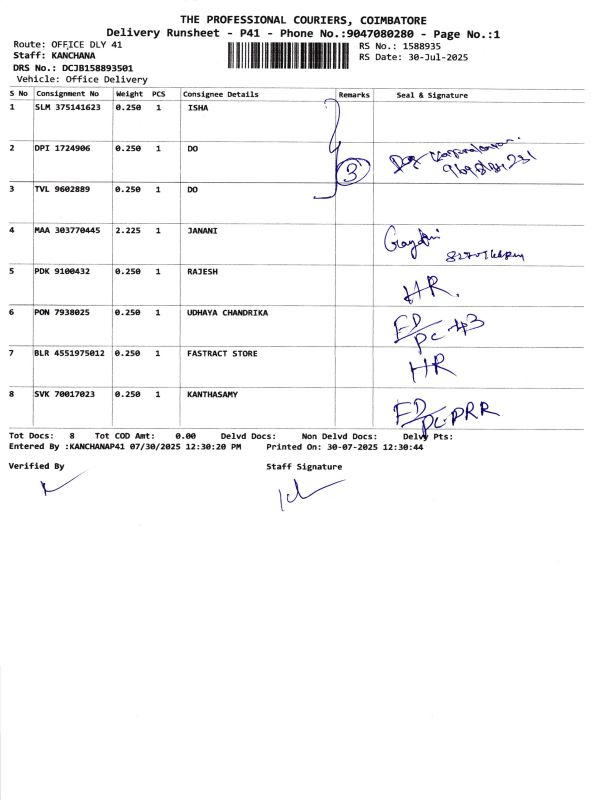 THE PROFESSIONAL COURIERS, COIMBATORE
Delivery Runsheet - P41 - Phone No.:9047080280 - Page No.:1
Route: OFFICE DLY 41
Staff: KANCHANA
DRS No.: DCJB158893501
Vehicle: Office Delivery
RS No.: 1588935
RS Date: 30-Jul-2025
S No Consignment No Weight PCS Consignee Details Remarks Seal & Signature
1 SLM 375141623 0.250 1 ISHA
2 DPI 1724906 0.250 1 DO
3
3 TVL 9602889 0.250 1 DO
4 MAA 303770445 2.225 1 JANANI
5 PDK 9100432 0.250 1 RAJESH HR.
6 PON 7938025 0.250 1 UDHAYA CHANDRIKA
7 BLR 4551975012 0.250 1 FASTRACT STORE HR
8 SVK 70017023 0.250 1 KANTHASAMY
Tot Docs: 8 Tot COD Amt: 0.00 Delvd Docs: Non Delvd Docs: Delvy Pts:
Entered By :KANCHANAP41 07/30/2025 12:30:20 PM Printed On: 30-07-2025 12:30:44
Verified By Staff Signature